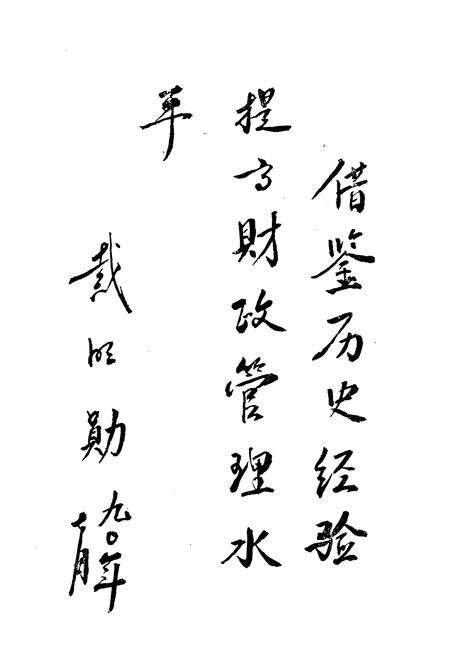 借鉴历史经验
提高财政管理水
平
戴明勋
九〇年
七月